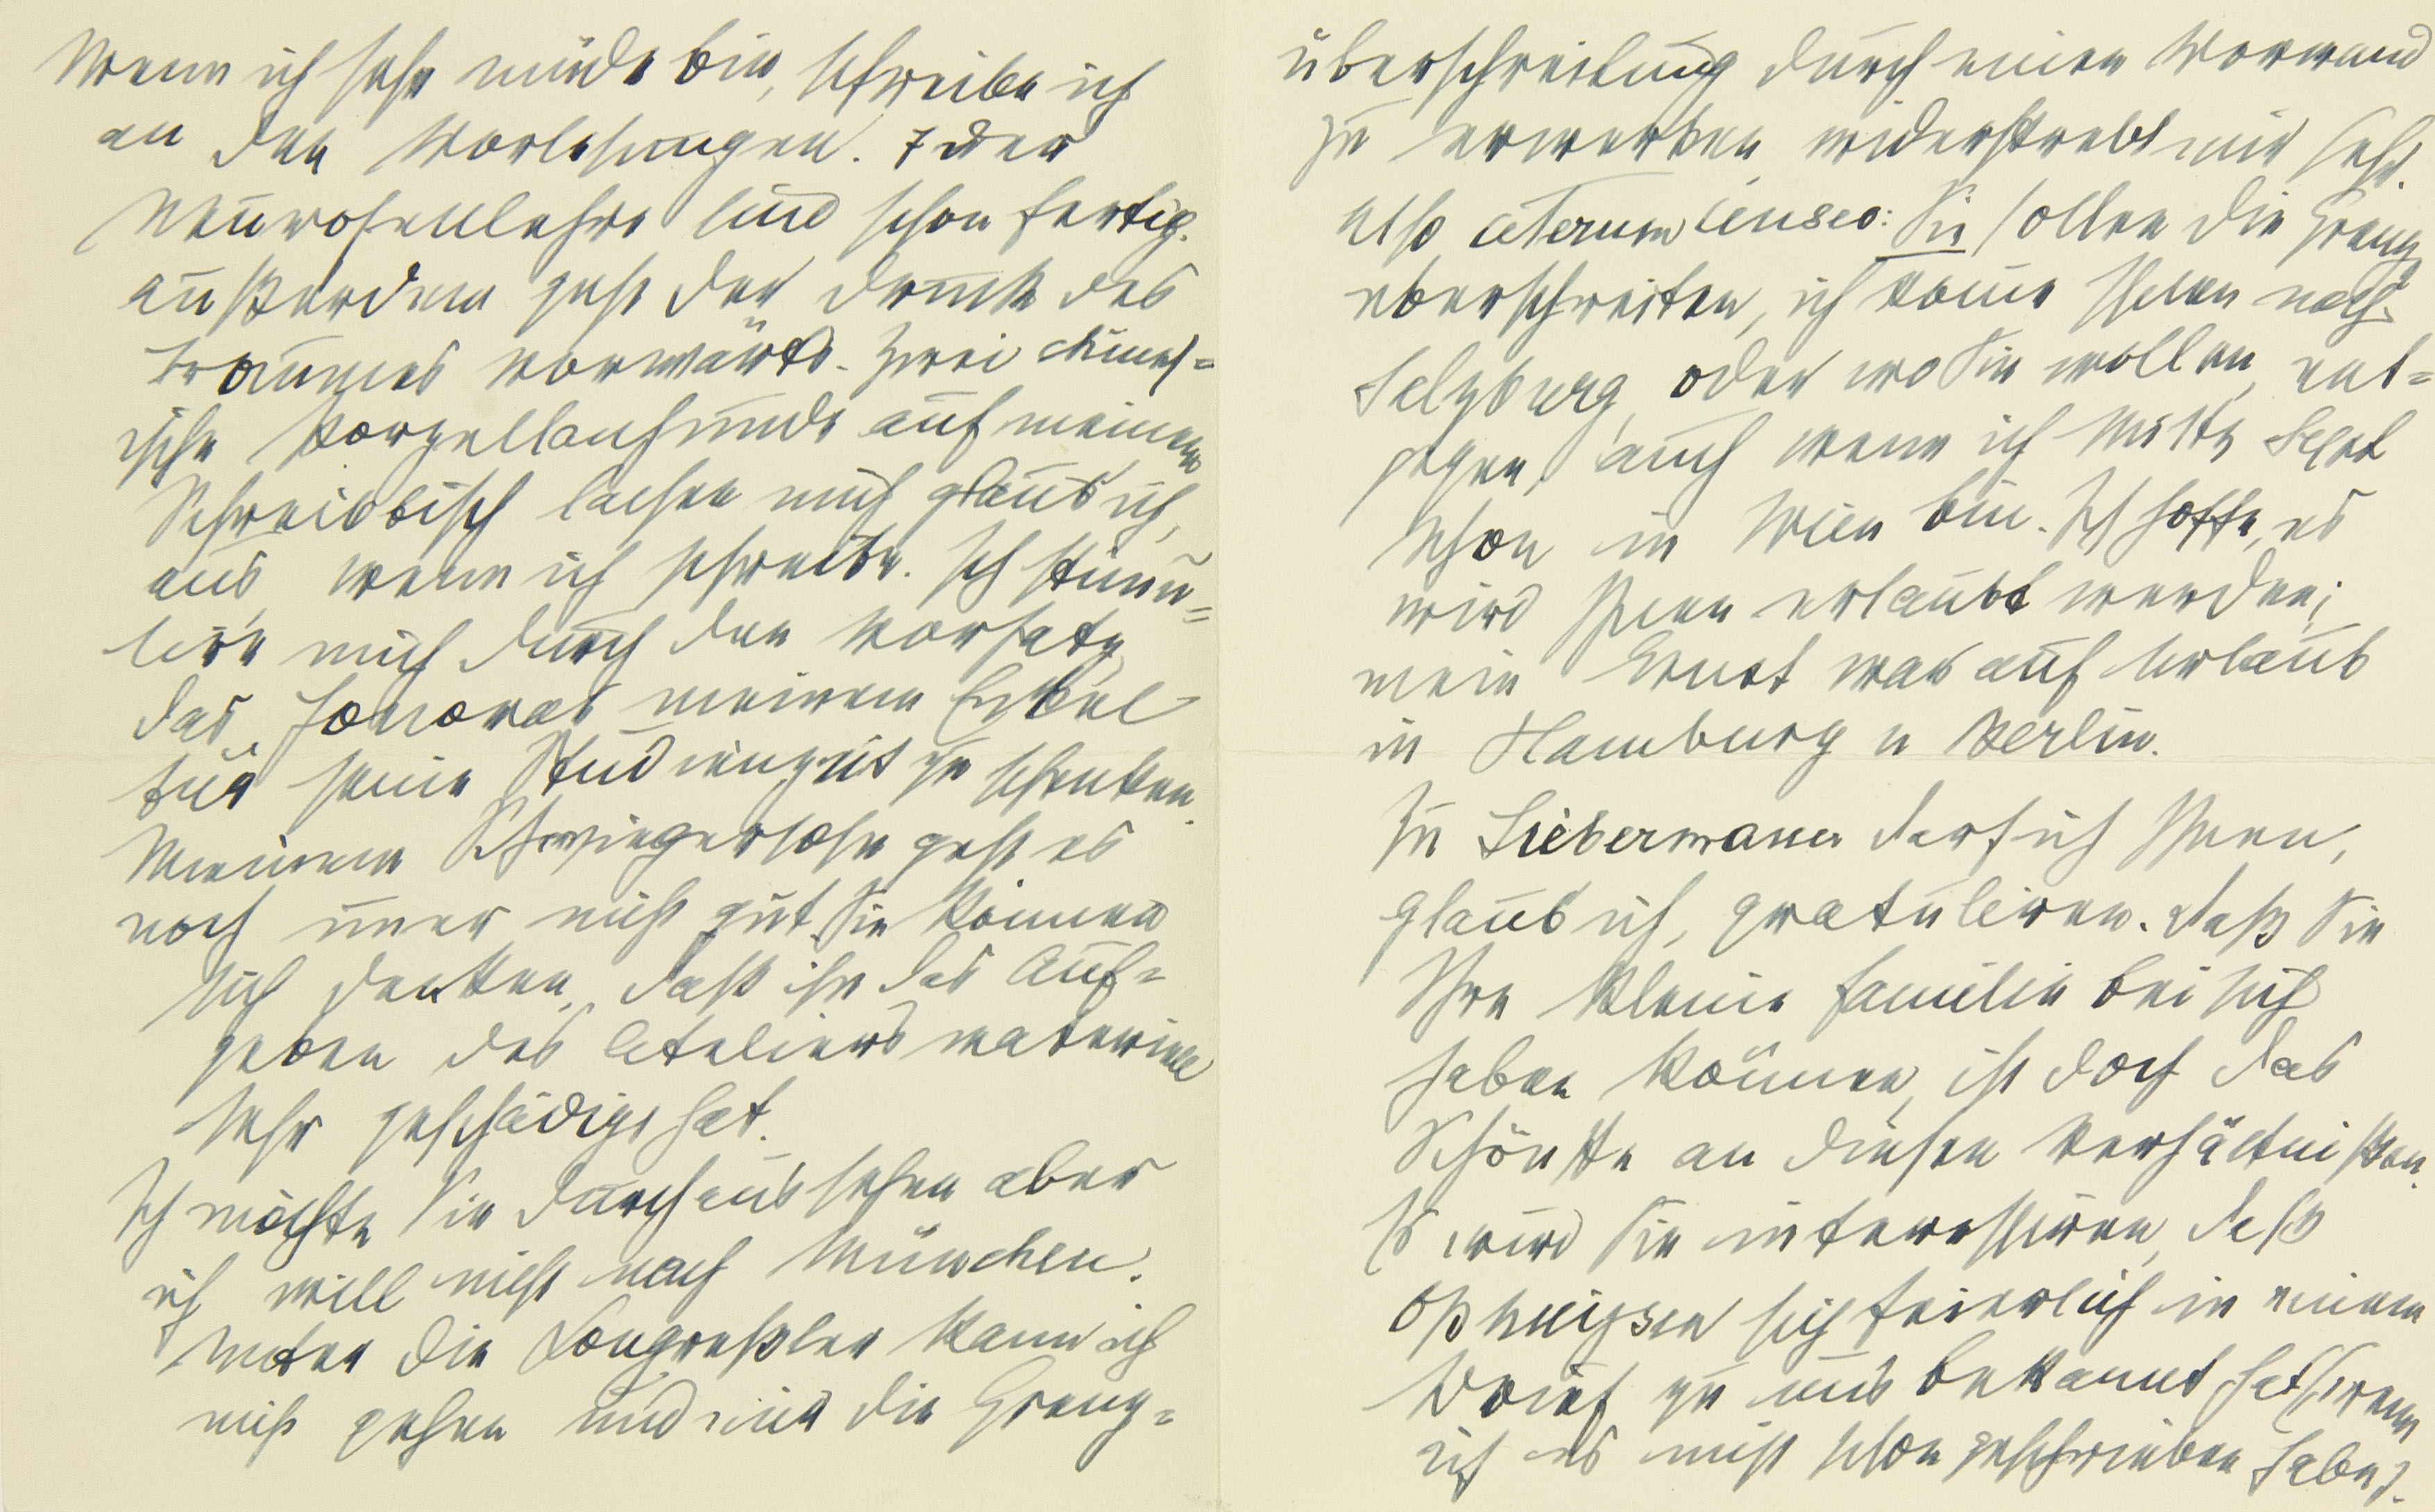 Wenn ich sehr müde bin, schreibe ich
an den Vorlesungen. 7 der
Neurosenlehre sind schon fertig.
Außerdem geht der Druck des
Traumes vorwärts. Zwei chines=
ische Porzellanhunde auf meinem
Schreibtisch lachen mich, glaub ich,
aus, wenn ich schreibe. Ich stimu=
lire mich durch den Vorsatz,
das Honorar meinem Enkel
für seine Studienzeit zu schenken.
Meinem Schwiegersohn geht es
noch im̅er nicht gut. Sie kön̅en
sich denken, daß ihn das Auf=
geben des Ateliers materiell
sehr geschädigt hat.
Ich möchte Sie durchaus sehen aber
ich will nicht nach München.
Unter die Congreßler kann ich
nicht gehen und mir die Grenz=
überschreitung durch einen Vorwand
zu erwerben, widerstrebt mir sehr.
Also ceterum censeo: Sie sollen die Grenze
überschreiten, ich kom̅e Ihnen nach
Salzburg, oder wo Sie wollen, ent=
gegen, auch wenn ich Mitte Sept
schon in Wien bin. Ich hoffe, es
wird Ihnen erlaubt werden;
mein Ernst war auf Urlaub
in Hamburg u Berlin.
Zu Liebermann darf ich Ihnen,
glaub ich, gratuliren. Daß Sie
Ihre kleine Familie bei sich
haben kön̅en, ist doch das
Schönste an diesen Verhältnissen.
Es wird Sie interessiren, daß
Ophuijsen sich feierlich in einem
Brief zu uns bekannt hat (wenn
ich es nicht schon geschrieben habe).